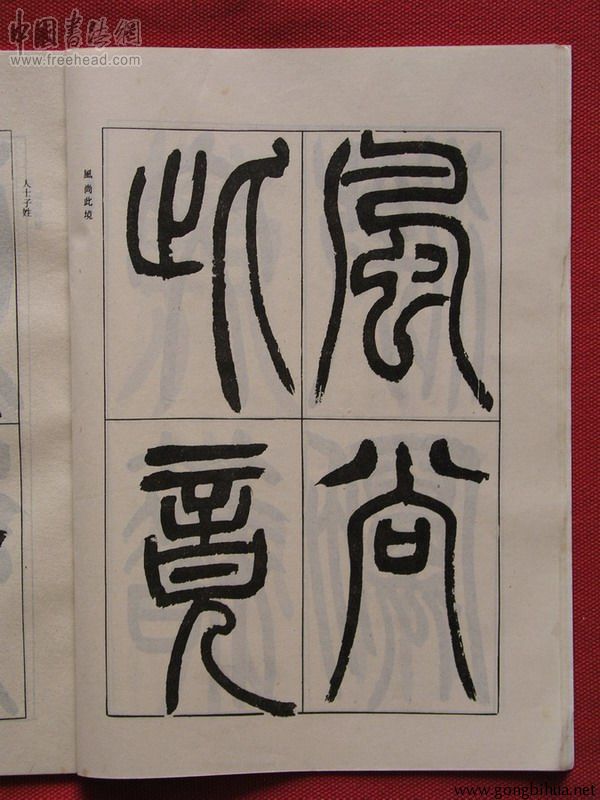 中國書法網
www.freehead.com
風尚
此竟
風尚此境
人士子姓
www.gongbihua.net